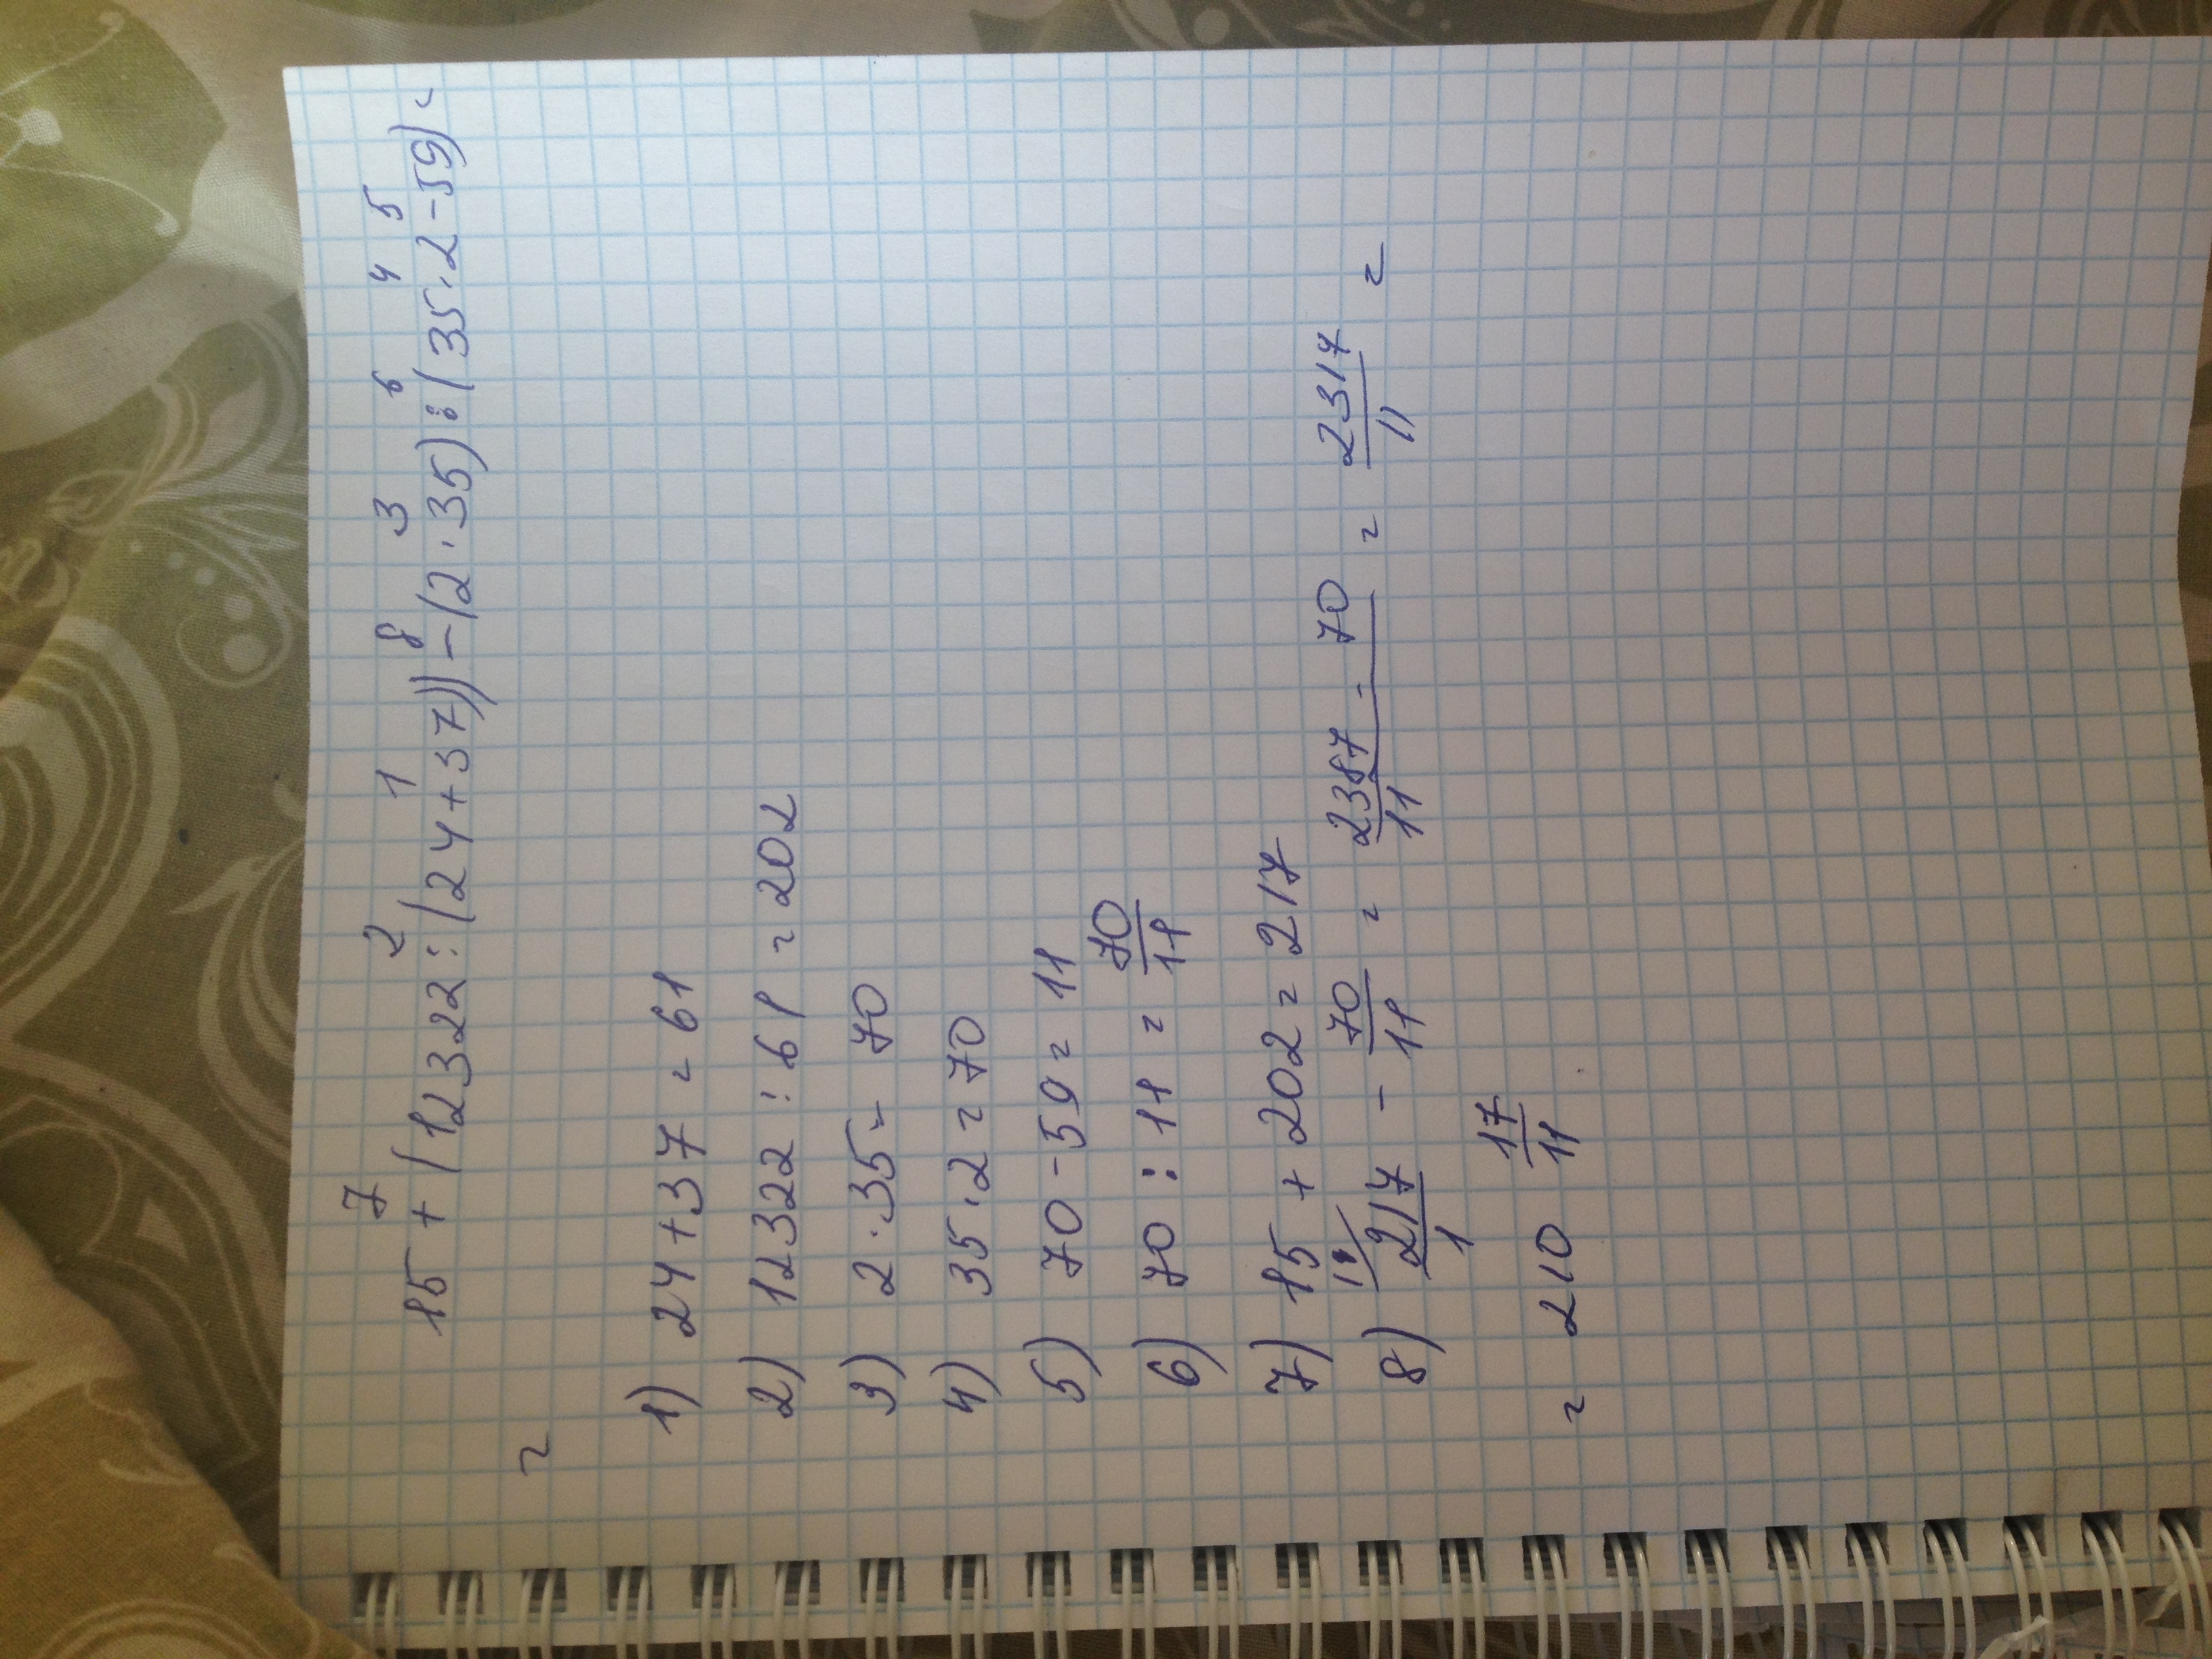 7 2 1 8 3 6 4 5
15 + (12322 : (24+37)) - (2·35) : (35·2-59) =
=
1) 24+37 = 61
2) 12322 : 61 = 202
3) 2·35 = 70
4) 35·2 = 70
5) 70-59 = 11
6) 70 : 11 = 70/11
7) 15 + 202 = 217
8) 217/1 - 70/11 = 2387/11 - 70 = 2317/11 =
= 210 17/11